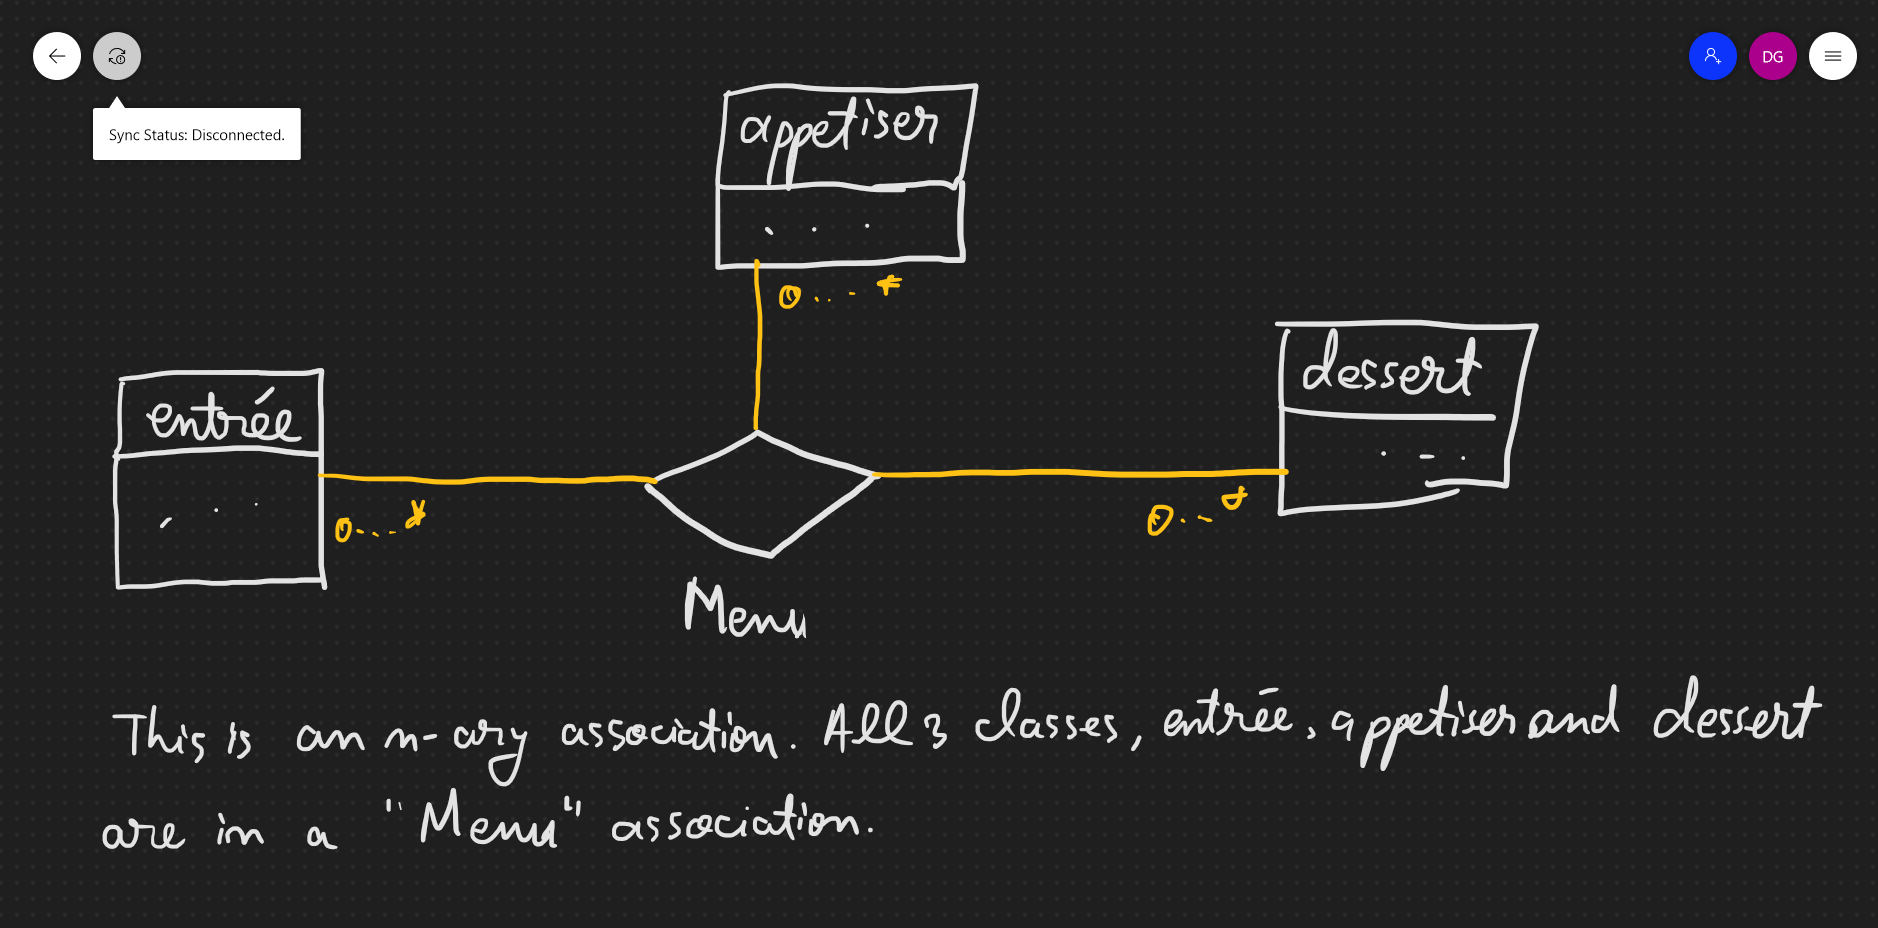 DG
Sync Status: Disconnected.
appetiser
. . .
0...*
dessert
. - .
entrée
. . .
0...*
0...*
Menu
This is an n-ary association. All 3 classes, entrée, appetiser and dessert
are in a "Menu" association.